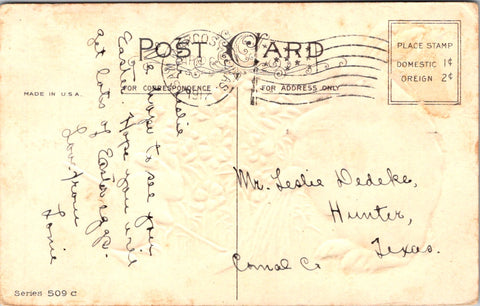 POST CARD
PLACE STAMP
DOMESTIC 1¢
OREIGN 2¢
MADE IN U.S.A.
FOR CORRESPONDENCE
FOR ADDRESS ONLY
Leslie
We hope to see you
Easter. Hope you will
get lots of Easter eggs.
Love from
Mr. Leslie Dedeke,
Hunter,
Texas.
Comal Co
Series 509 C